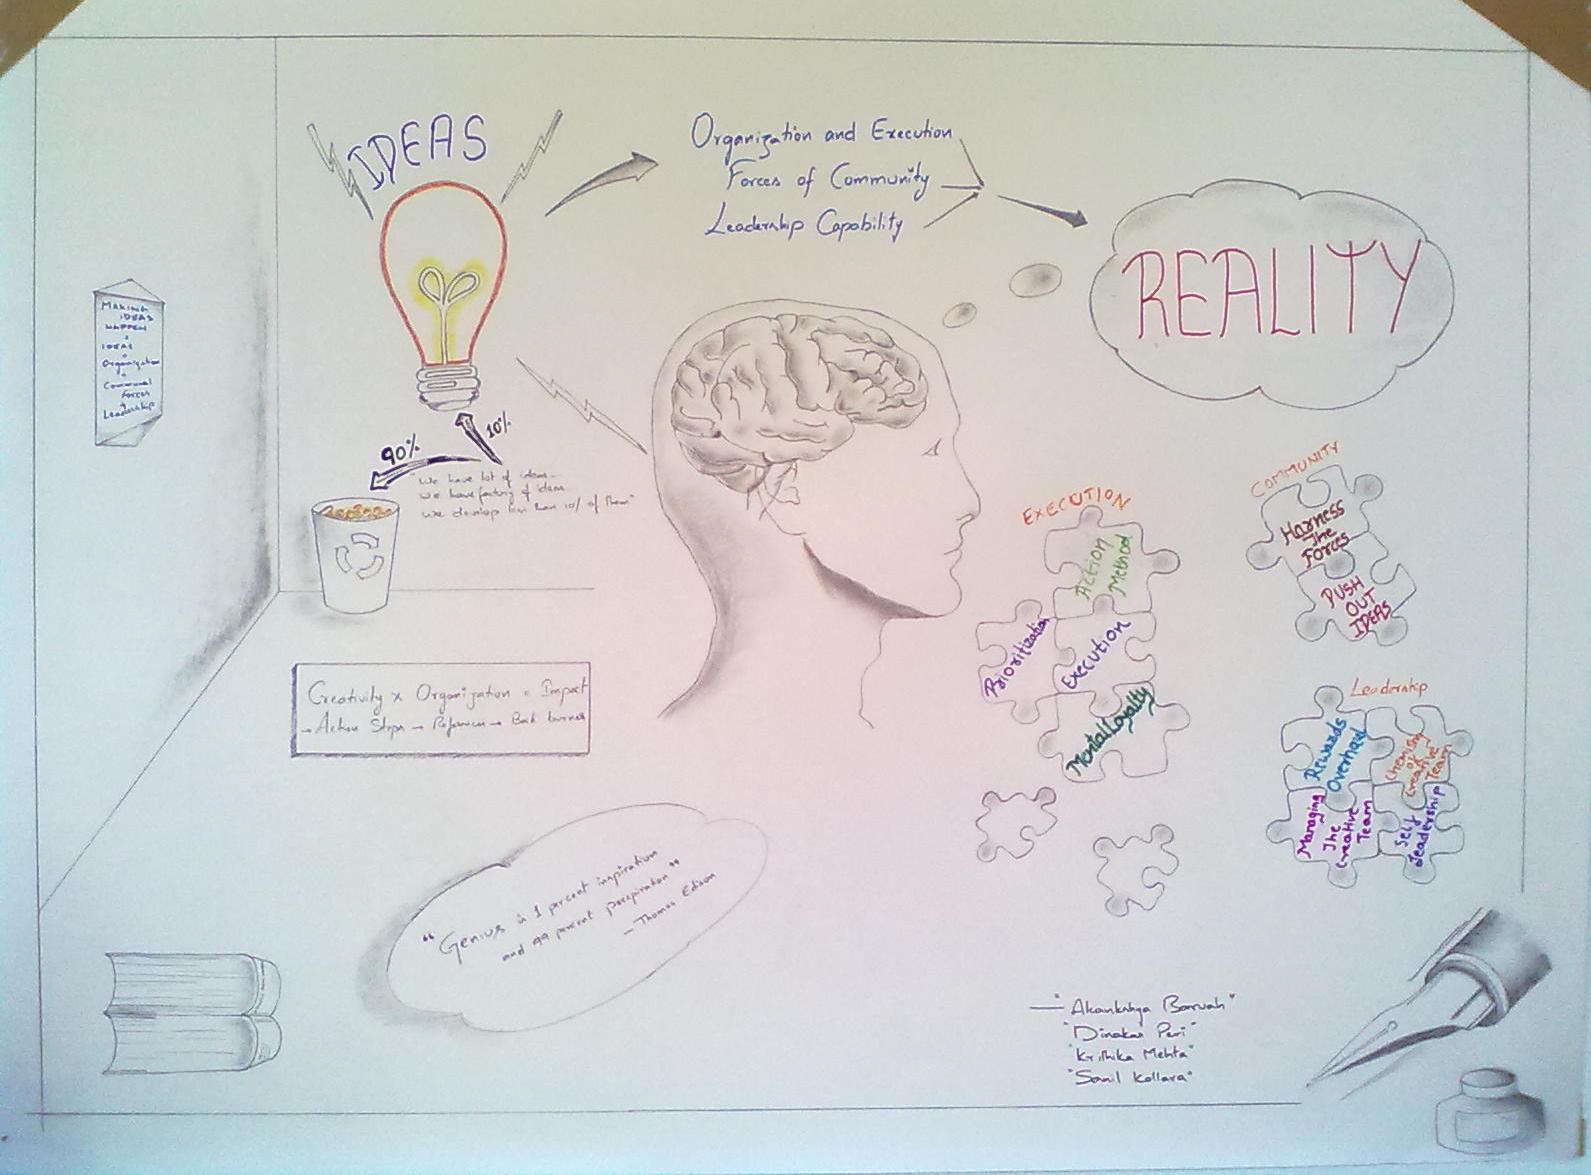 IDEAS
Organization and Execution
Forces of Community
Leadership Capability
REALITY
MAKING
IDEAS
HAPPEN
=
IDEAS
+
Organization
+
Communal
Forces
+
Leadership
90%
10%
"We have lot of ideas
we have factory of ideas
we develop less than 10% of them"
Creativity x Organization = Impact
- Action Steps - References - Back burner
"Genius is 1 percent inspiration
and 99 percent perspiration"
- Thomas Edison
EXECUTION
Action
Method
Prioritization
Execution
Mental Loyalty
COMMUNITY
HARNESS
The
FORCES
PUSH
OUT
IDEAS
Leadership
Rewards
Overhaul
Chemistry
of
Creative
Team
Managing
The
Creative
Team
Self
Leadership
"Akankshya Baruah"
"Dinakar Peri"
"Krithika Mehta"
"Sanil Kollara"